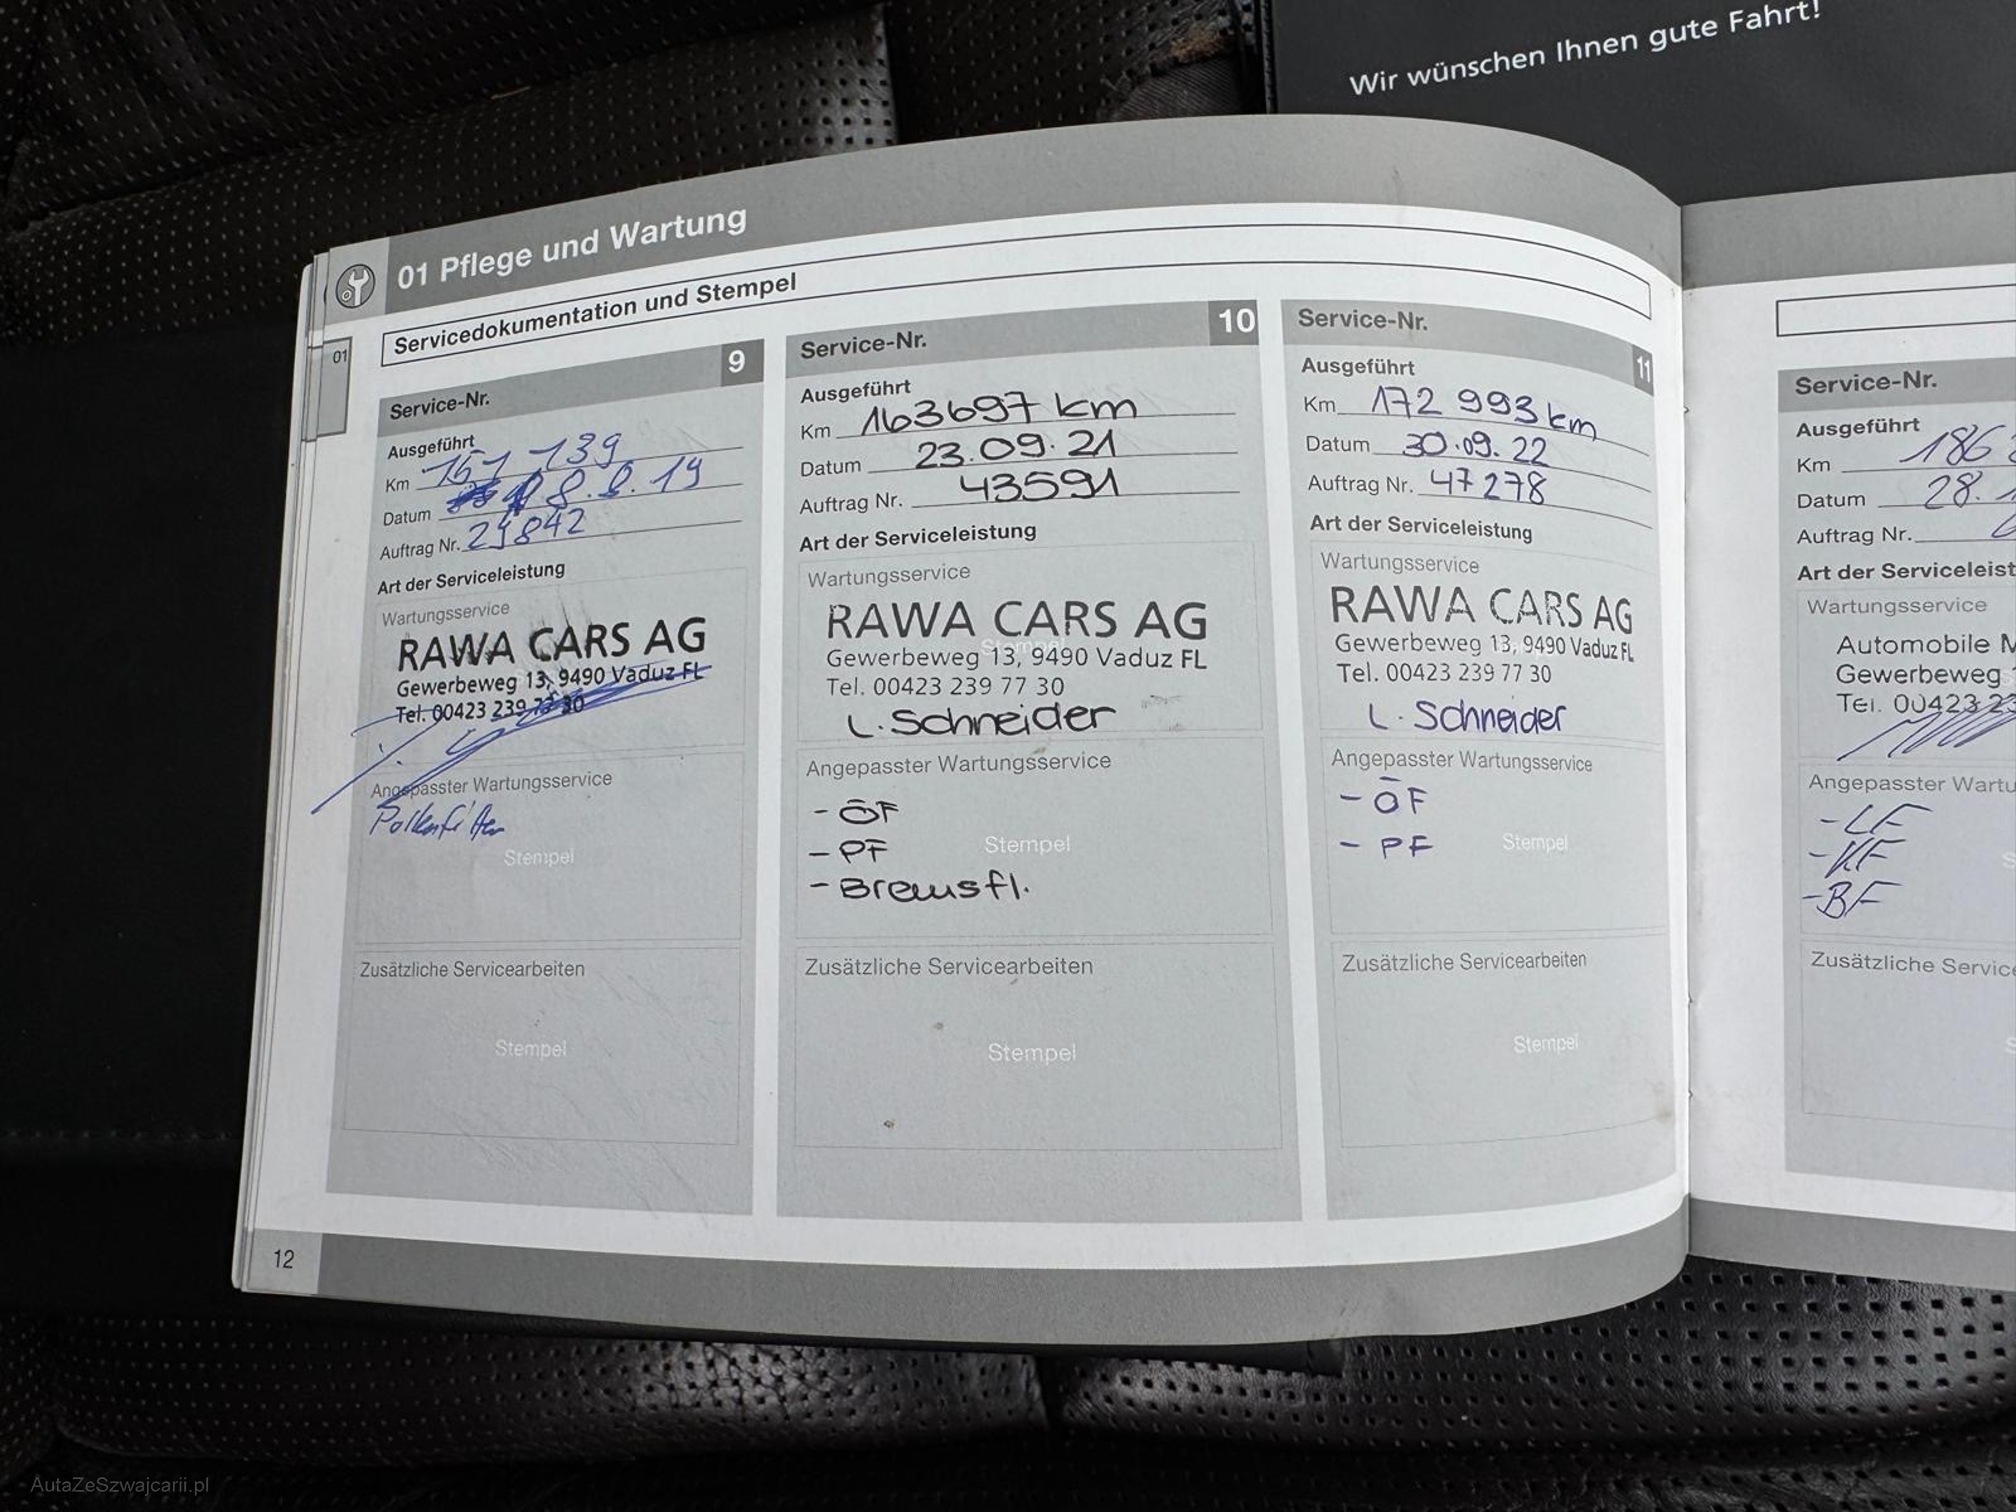 Wir wünschen Ihnen gute Fahrt!
01 Pflege und Wartung
Servicedokumentation und Stempel
01
Service-Nr. 9
Ausgeführt
Km 151 139
Datum 8.8.19
Auftrag Nr.
Art der Serviceleistung
Wartungsservice
RAWA CARS AG
Gewerbeweg 13, 9490 Vaduz FL
Tel. 00423 239 77 30
Angepasster Wartungsservice
Pollenfilter
Stempel
Zusätzliche Servicearbeiten
Stempel
Service-Nr. 10
Ausgeführt
Km 163697 km
Datum 23.09.21
Auftrag Nr. 43591
Art der Serviceleistung
Wartungsservice
RAWA CARS AG
Gewerbeweg 13, 9490 Vaduz FL
Tel. 00423 239 77 30
L. Schneider
Angepasster Wartungsservice
- ÖF
- PF
- Bremsfl.
Stempel
Zusätzliche Servicearbeiten
Stempel
Service-Nr. 11
Ausgeführt
Km 172 993 km
Datum 30.09.22
Auftrag Nr. 47278
Art der Serviceleistung
Wartungsservice
RAWA CARS AG
Gewerbeweg 13, 9490 Vaduz FL
Tel. 00423 239 77 30
L. Schneider
Angepasster Wartungsservice
- ÖF
- PF
Stempel
Zusätzliche Servicearbeiten
Stempel
12
Service-Nr.
Ausgeführt
Km 186
Datum 28.
Auftrag Nr.
Art der Serviceleist
Wartungsservice
Automobile M
Gewerbeweg
Tel. 00423 23
Angepasster Wartu
- LF
- KF
- BF
Zusätzliche Service
AutaZeSzwajcarii.pl